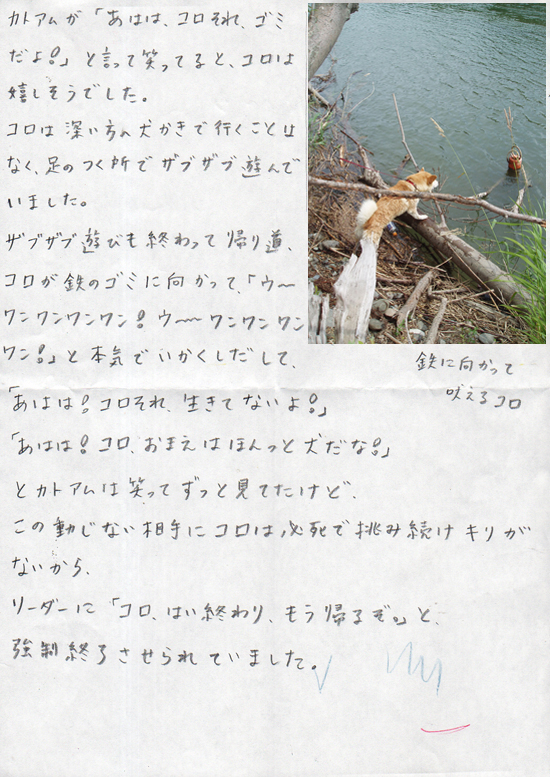 カトアムが「あはは、コロそれ、ゴミ
だよ！」と言って笑ってると、コロは
嬉しそうでした。
コロは深い方へ犬かきで行くことは
なく、足のつく所でザブザブ遊んで
いました。
ザブザブ遊びも終わって帰り道、
コロが鉄のゴミに向かって、「ウ～～
ワンワンワンワン！ウ～～ワンワンワン
ワン！」と本気でいかくしだして、
「あはは！コロそれ、生きてないよ！」
「あはは！コロ、おまえはほんっと犬だな！」
とカトアムは笑ってずっと見てたけど、
この動じない相手にコロは、必死で挑み続けキリが
ないから、
リーダーに「コロ、はい終わり、もう帰るぞ。」と、
強制終了させられていました。
鉄に向かって
吠えるコロ